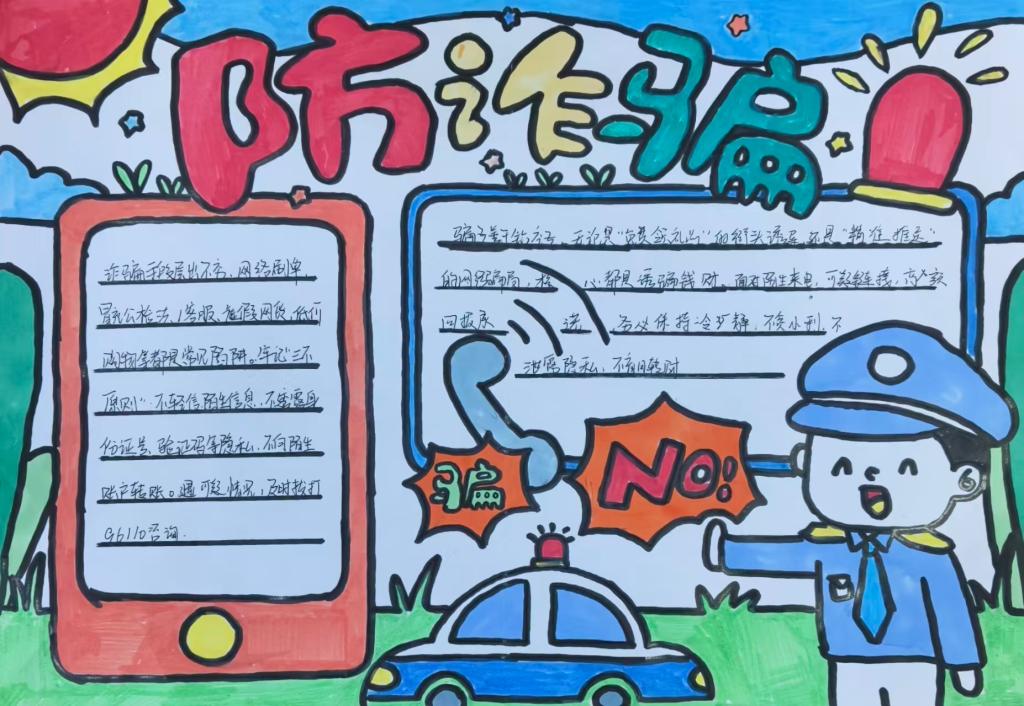 防诈骗
诈骗手段层出不穷、网络刷单
冒充公检法、客服、虚假网贷、低价
购物等都是常见陷阱。牢记"三不
原则"：不轻信陌生信息、不透露身
份证号、验证码等隐私、不向陌生
账户转账。遇可疑情况，及时拨打
96110咨询.
骗子善于伪不、无论是"免费金礼品"的街头诱惑，还是"精准推送"
的网络骗局，核心都是诱骗钱财。面对陌生来电，可疑链接，高
回报 务必保持冷静，不贪小利、不
泄露隐私、不盲目转财
骗
NO!